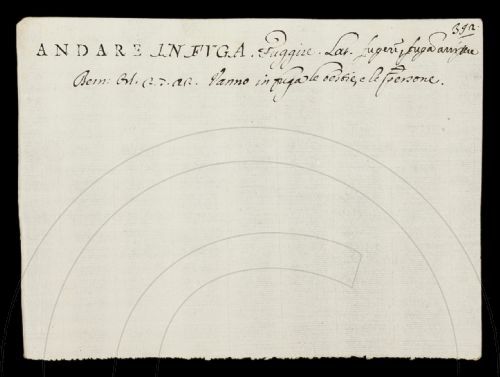 392
ANDARE IN FUGA. Fuggire. Lat. fugere, fugã arripere
Bern: Orl. 2. 7. 42. Vanno in fuga le bestie, e le persone.